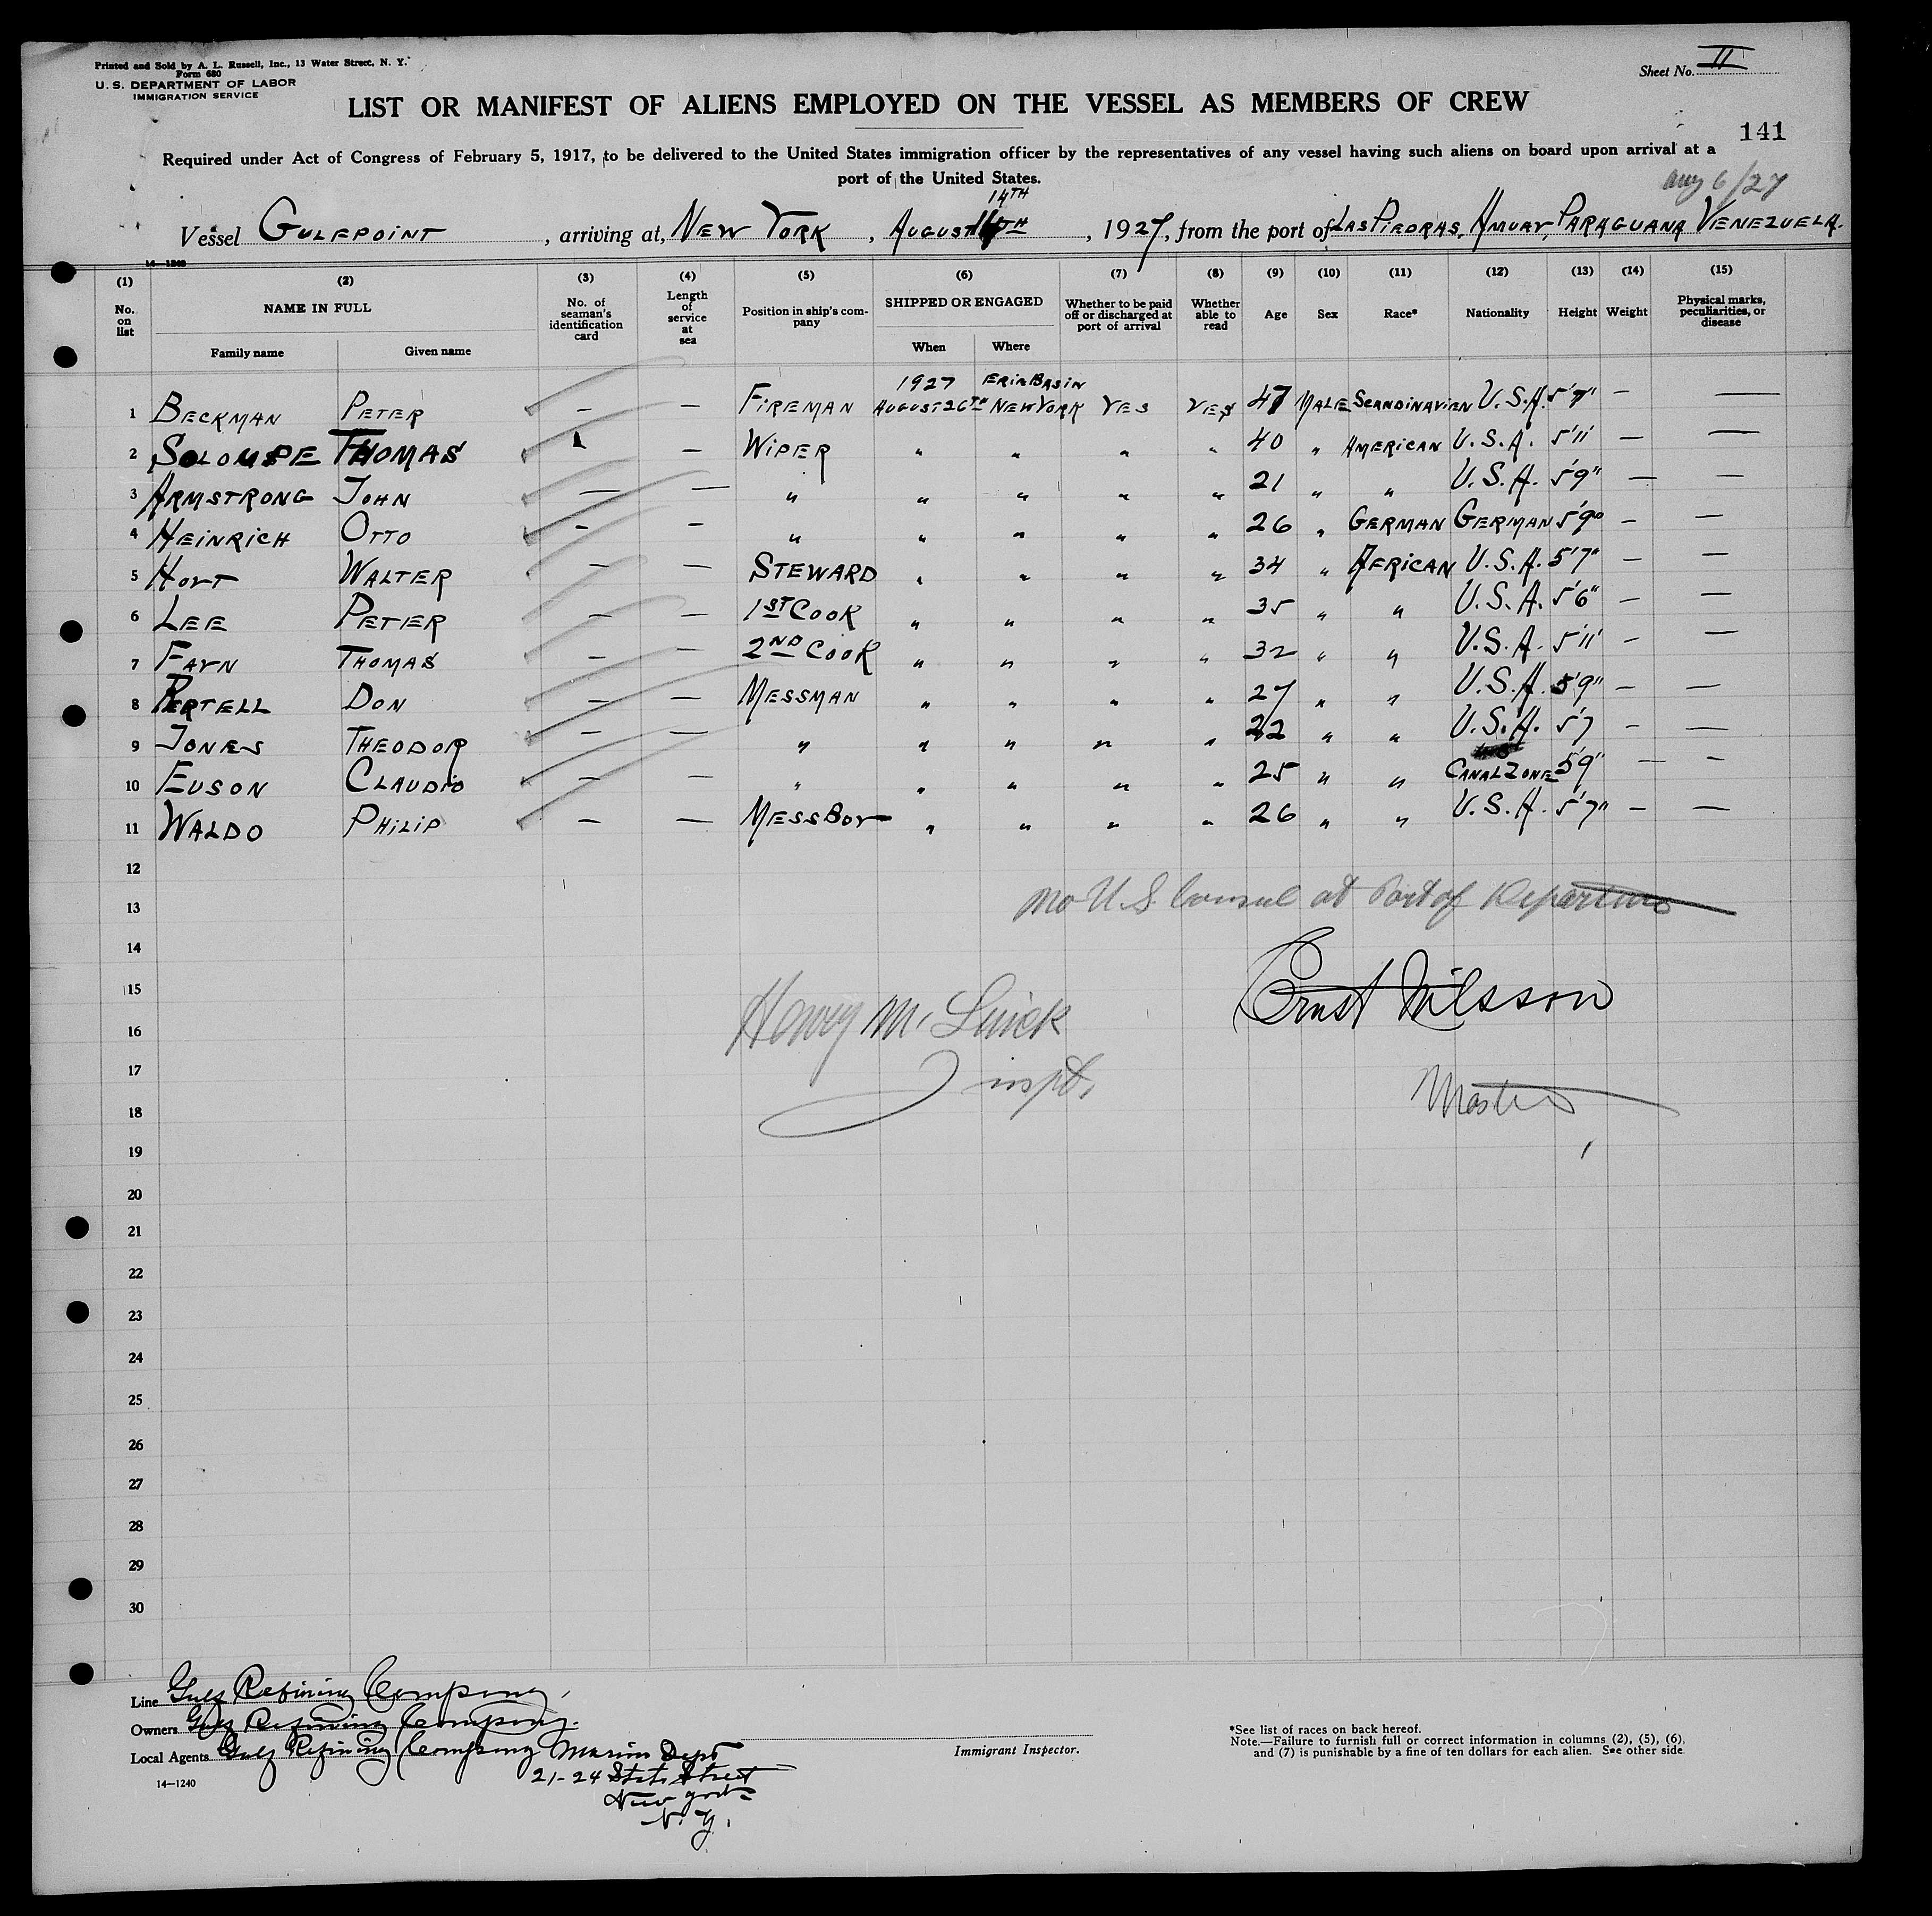 Printed and Sold by A. L. Russell, Inc., 13 Water Street, N. Y.
Form 680
U. S. DEPARTMENT OF LABOR
IMMIGRATION SERVICE
Sheet No. II
LIST OR MANIFEST OF ALIENS EMPLOYED ON THE VESSEL AS MEMBERS OF CREW
141
Required under Act of Congress of February 5, 1917, to be delivered to the United States immigration officer by the representatives of any vessel having such aliens on board upon arrival at a
port of the United States.
Aug 6/27
14TH
Vessel GULFPOINT, arriving at, NEW YORK, AUGUST, 1927, from the port of LAS PIEDRAS, AMUAY, PARAGUANA VENEZUELA.
14—1240
(1) (2) (3) (4) (5) (6) (7) (8) (9) (10) (11) (12) (13) (14) (15)
No. on list NAME IN FULL No. of seaman's identification card Length of service at sea Position in ship's company SHIPPED OR ENGAGED Whether to be paid off or discharged at port of arrival Whether able to read Age Sex Race* Nationality Height Weight Physical marks, peculiarities, or disease
Family name Given name When Where
1927 ERIE BASIN
1 BECKMAN PETER — — FIREMAN AUGUST 26TH NEW YORK YES YES 47 MALE SCANDINAVIEN U.S.A. 5'7" — —
2 SOLOMSPE THOMAS — WIPER " " " " 40 " AMERICAN U.S.A. 5'11' — —
3 ARMSTRONG JOHN — — " " " " " 21 " " U.S.A. 5'9" — —
4 HEINRICH OTTO — — " " " " " 26 " GERMAN GERMAN 5'9" — —
5 HOYT WALTER — — STEWARD " " " " 34 " AFRICAN U.S.A. 5'7" — —
6 LEE PETER — — 1ST COOK " " " " 35 " " U.S.A. 5'6" — —
7 FAYN THOMAS — — 2ND COOK " " " " 32 " " U.S.A. 5'11' — —
8 PERTELL DON — — MESSMAN " " " " 27 " " U.S.A. 5'9" — —
9 JONES THEODOR — — " " " " " 22 " " U.S.A. 5'7 — —
10 EUSON CLAUDIO — — " " " " " 25 " " CANAL ZONE 5'9" — —
11 WALDO PHILIP — — MESSBOY " " " " 26 " " U.S.A. 5'7" — —
12
13 No U.S. Consul at Port of Departure
14
15 Ernst Nilsson
16
17 inspt.
18 Master
19
20
21
22
23
24
25
26
27
28
29
30
Line Gulf Refining Company,
Owners Gulf Refining Company.
Local Agents Gulf Refining Company Marine Dept
21-24 State Street
New York
N. Y.
Immigrant Inspector.
14—1240
*See list of races on back hereof.
Note.—Failure to furnish full or correct information in columns (2), (5), (6),
and (7) is punishable by a fine of ten dollars for each alien. See other side